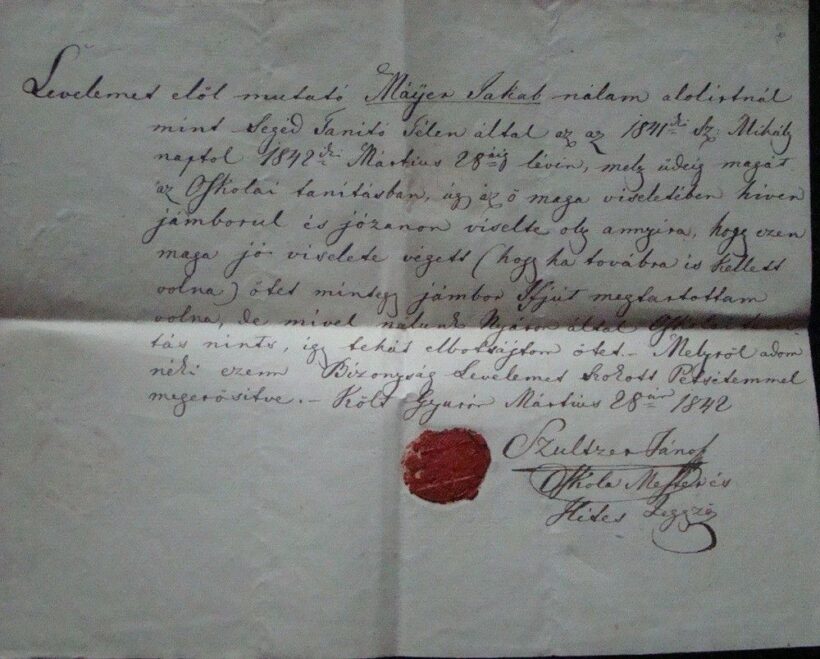 Levelemet elöl mutató Máÿer Jakab nálam alolirtnál
mint Segéd Tanitó Télen által az az 1841dki Sz: Mihály
naptol 1842dki Mártius 28áig lévén, mely üdeig magát
az Oskolai tanitásban, úgy az ő maga viseletében hiven
jámborul és józanon viselte oly annyira, hogy ezen
maga jó viselete végett (hogy ha továbra is kellett
volna) ötet mintegy jámbor Ifjút megtartottam
volna, de mivel nálunk Nyáron által Oskolai
tás nints, igy tehát elbotsájtom ötet. – Melyröl adom
néki ezenn Bizonyság Levelemet szokott Petsétemmel
megerösitve. – Költ Gyurón Mártius 28án 1842
Szultzer János
Oskola Mester és
Hites Jegyző